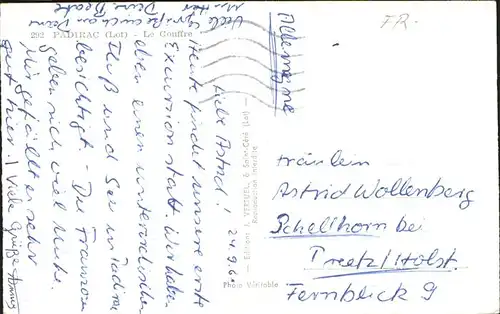 292 PADIRAC (Lot) - Le Gouffre
Liebe Astrid! 24.9.6
Heute findet unsere erste
Exkursion statt. Wir haben
eben einen unterirdischen
Fluß und See in Padirac
besichtigt. - Die Franzosen
geben sich viel Mühe.
Mir gefällt es sehr
gut hier! Viele Grüße
Viele Grüße auch an Deine
Mutter Deine
Editions J. VERTUEL, à Saint-Céré (Lot)
Reproduction interdite
Photo Véritable
Allemagne
FR.
Fräulein
Astrid Wollenberg
Schellhorn bei
Preetz/Holst.
Fernblick 9